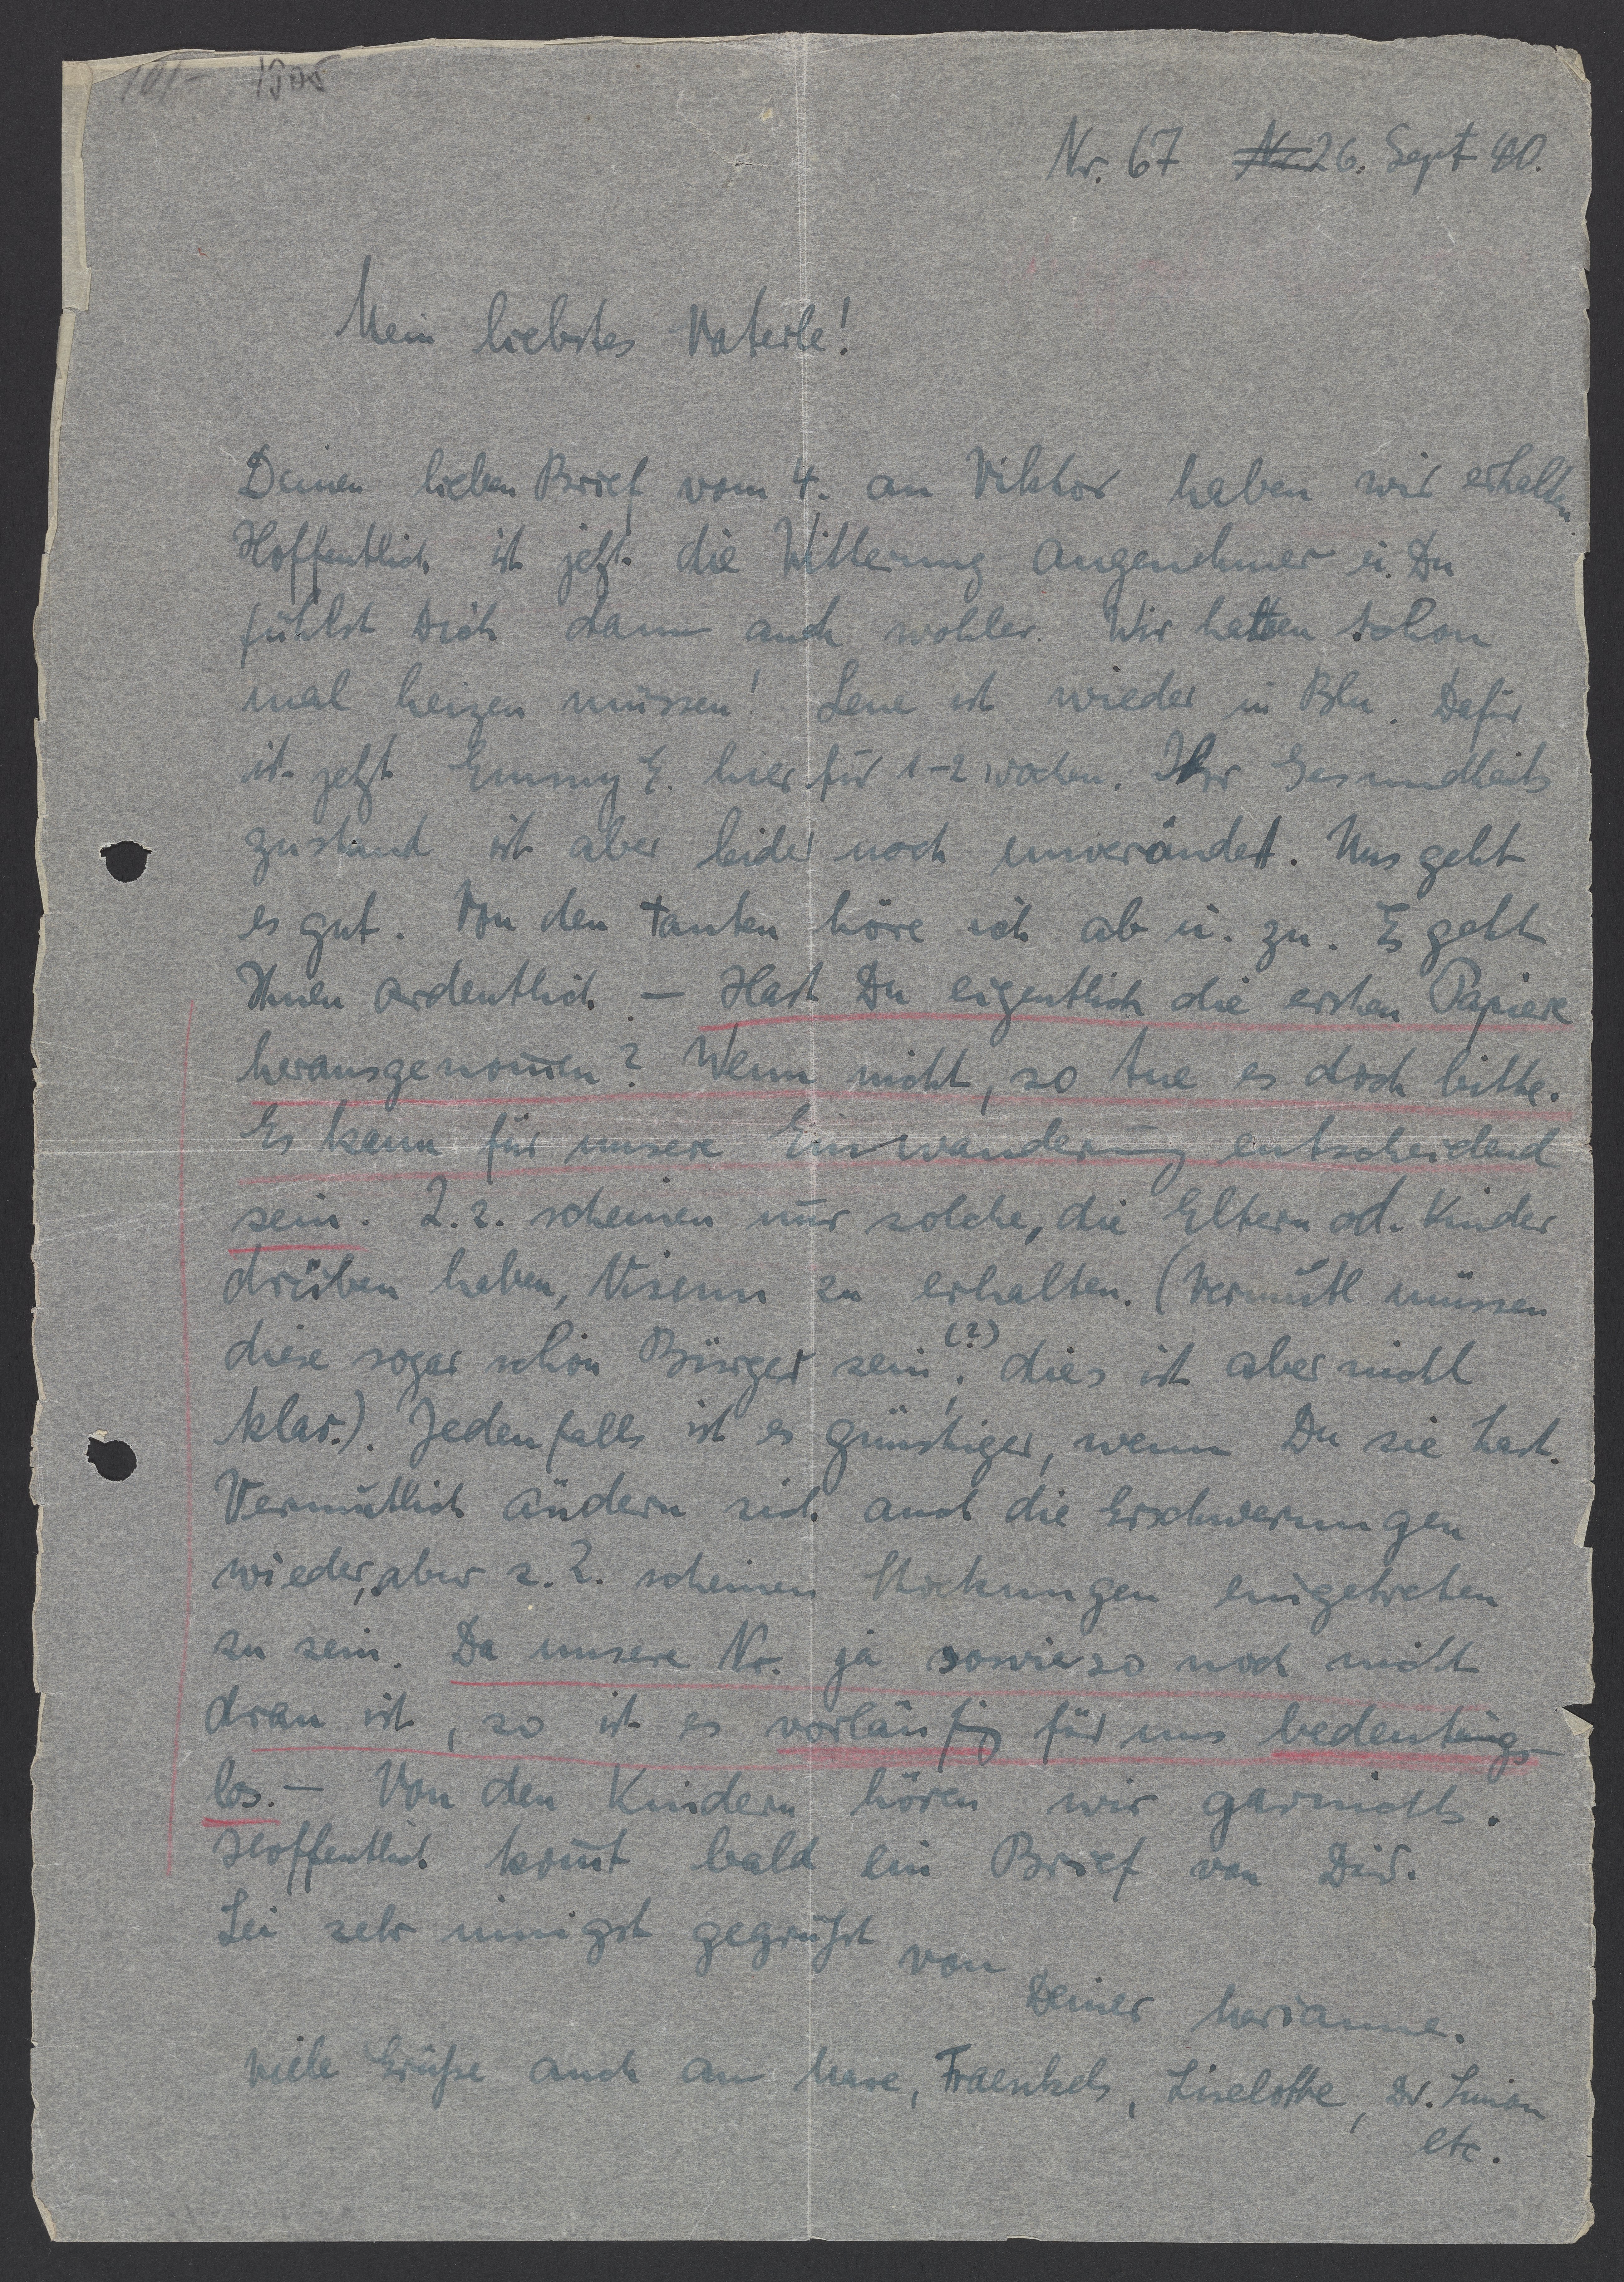 Nr. 67 26. Sept 40.
Mein liebstes Vaterle!
Deinen lieben Brief vom 4. an Viktor haben wir erhalten.
Hoffentlich ist jetzt die Witterung angenehmer u. Du
fühlst Dich dann auch wohler. Wir hatten schon
mal heizen müssen! Lene ist wieder in Bln. Dafür
ist jetzt Emmy E. hier für 1-2 Wochen. Ihr Gesundheits
zustand ist aber leider noch unverändert. Uns geht
es gut. Von den Tanten höre ich ab u. zu. Es geht
Ihnen ordentlich. – Hast Du eigentlich die ersten Papiere
herausgenom̄en? Wenn nicht, so tue es doch bitte.
Es kann für unsere Einwanderung entscheidend
sein. Z. Z. scheinen nur solche, die Eltern od. Kinder
drüben haben, Visum zu erhalten. (Vermutl müssen
diese sogar schon Bürger sein (?), dies ist aber nicht
klar.). Jedenfalls ist es günstiger, wenn Du sie hast.
Vermutlich ändern sich auch die Erschwerungen
wieder, aber z. Z. scheinen Stockungen eingetreten
zu sein. Da unsere Nr. ja sowieso noch nicht
dran ist, so ist es vorläufig für uns bedeutungs-
los. – Von den Kindern hören wir garnichts.
Hoffentlich kom̄t bald ein Brief von Dir.
Sei sehr innigst gegrüßt von
Deiner Marianne.
Viele Grüße auch an Fraenkels, Liselotte, Dr. Simon
etc.